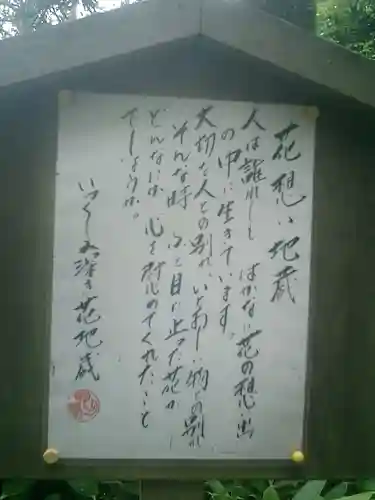 花想い地蔵
人は誰しも はかない花の想い出
の中に生きています。
大切な人との別れ、いとおしい物との別れ
そんな時 ふと目に止った花が
どんなにか 心を慰めてくれたこと
でしょうか。
いつくしみ深き花地蔵